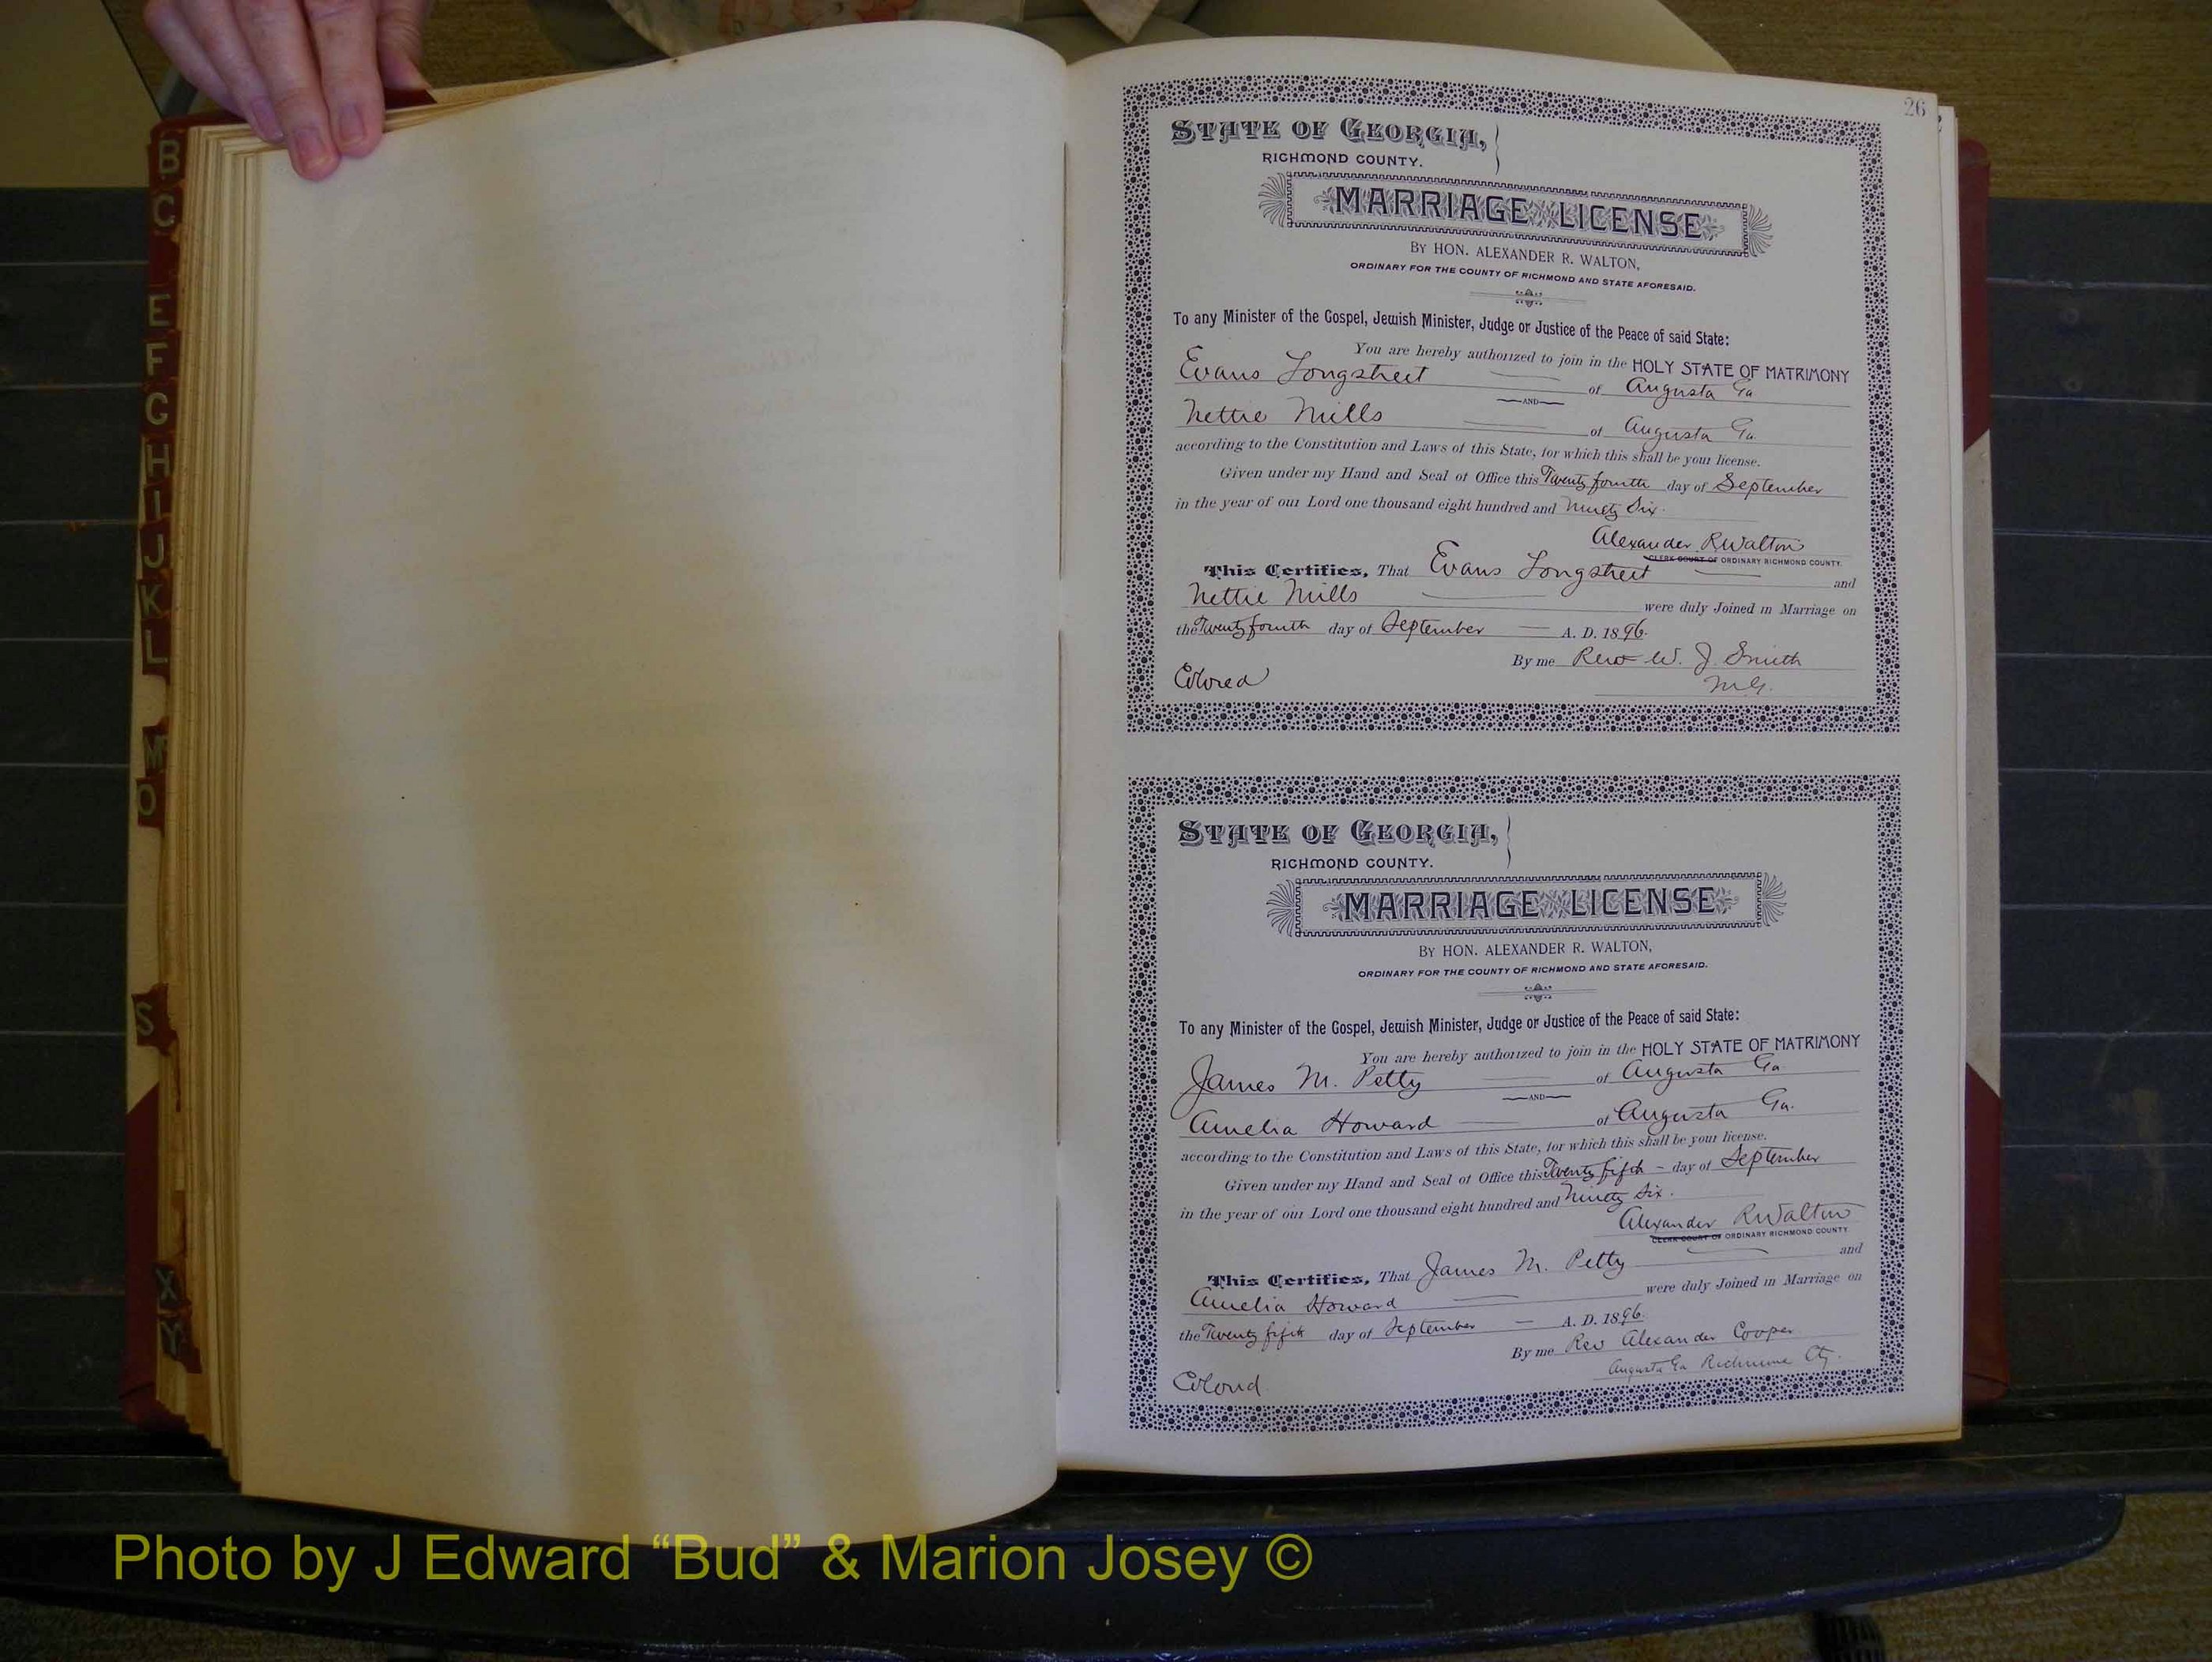 B
C
E
F
G
H
I
J
K
L
M
O
S
X
Y
26
STATE OF GEORGIA,
RICHMOND COUNTY.
MARRIAGE LICENSE
BY HON. ALEXANDER R. WALTON,
ORDINARY FOR THE COUNTY OF RICHMOND AND STATE AFORESAID.
To any Minister of the Gospel, Jewish Minister, Judge or Justice of the Peace of said State:
You are hereby authorized to join in the HOLY STATE OF MATRIMONY
Evans Longstreet of Augusta Ga
AND
Nettie Mills of Augusta Ga.
according to the Constitution and Laws of this State, for which this shall be your license.
Given under my Hand and Seal of Office this Twenty fourth day of September
in the year of our Lord one thousand eight hundred and Ninety Six.
Alexander R Walton
CLERK COURT OF ORDINARY RICHMOND COUNTY.
This Certifies, That Evans Longstreet and
Nettie Mills were duly Joined in Marriage on
the Twenty fourth day of September A. D. 1896.
By me Rev W. J. Smith
M.G.
Colored
STATE OF GEORGIA,
RICHMOND COUNTY.
MARRIAGE LICENSE
BY HON. ALEXANDER R. WALTON,
ORDINARY FOR THE COUNTY OF RICHMOND AND STATE AFORESAID.
To any Minister of the Gospel, Jewish Minister, Judge or Justice of the Peace of said State:
You are hereby authorized to join in the HOLY STATE OF MATRIMONY
James M. Petty of Augusta Ga
AND
Amelia Howard of Augusta Ga.
according to the Constitution and Laws of this State, for which this shall be your license.
Given under my Hand and Seal of Office this Twenty fifth – day of September
in the year of our Lord one thousand eight hundred and Ninety Six.
Alexander R Walton
CLERK COURT OF ORDINARY RICHMOND COUNTY
This Certifies, That James M. Petty and
Amelia Howard were duly Joined in Marriage on
the Twenty fifth day of September – A. D. 1896.
By me Rev Alexander Cooper
Augusta Ga Cty.
Colored
Photo by J Edward “Bud” & Marion Josey ©